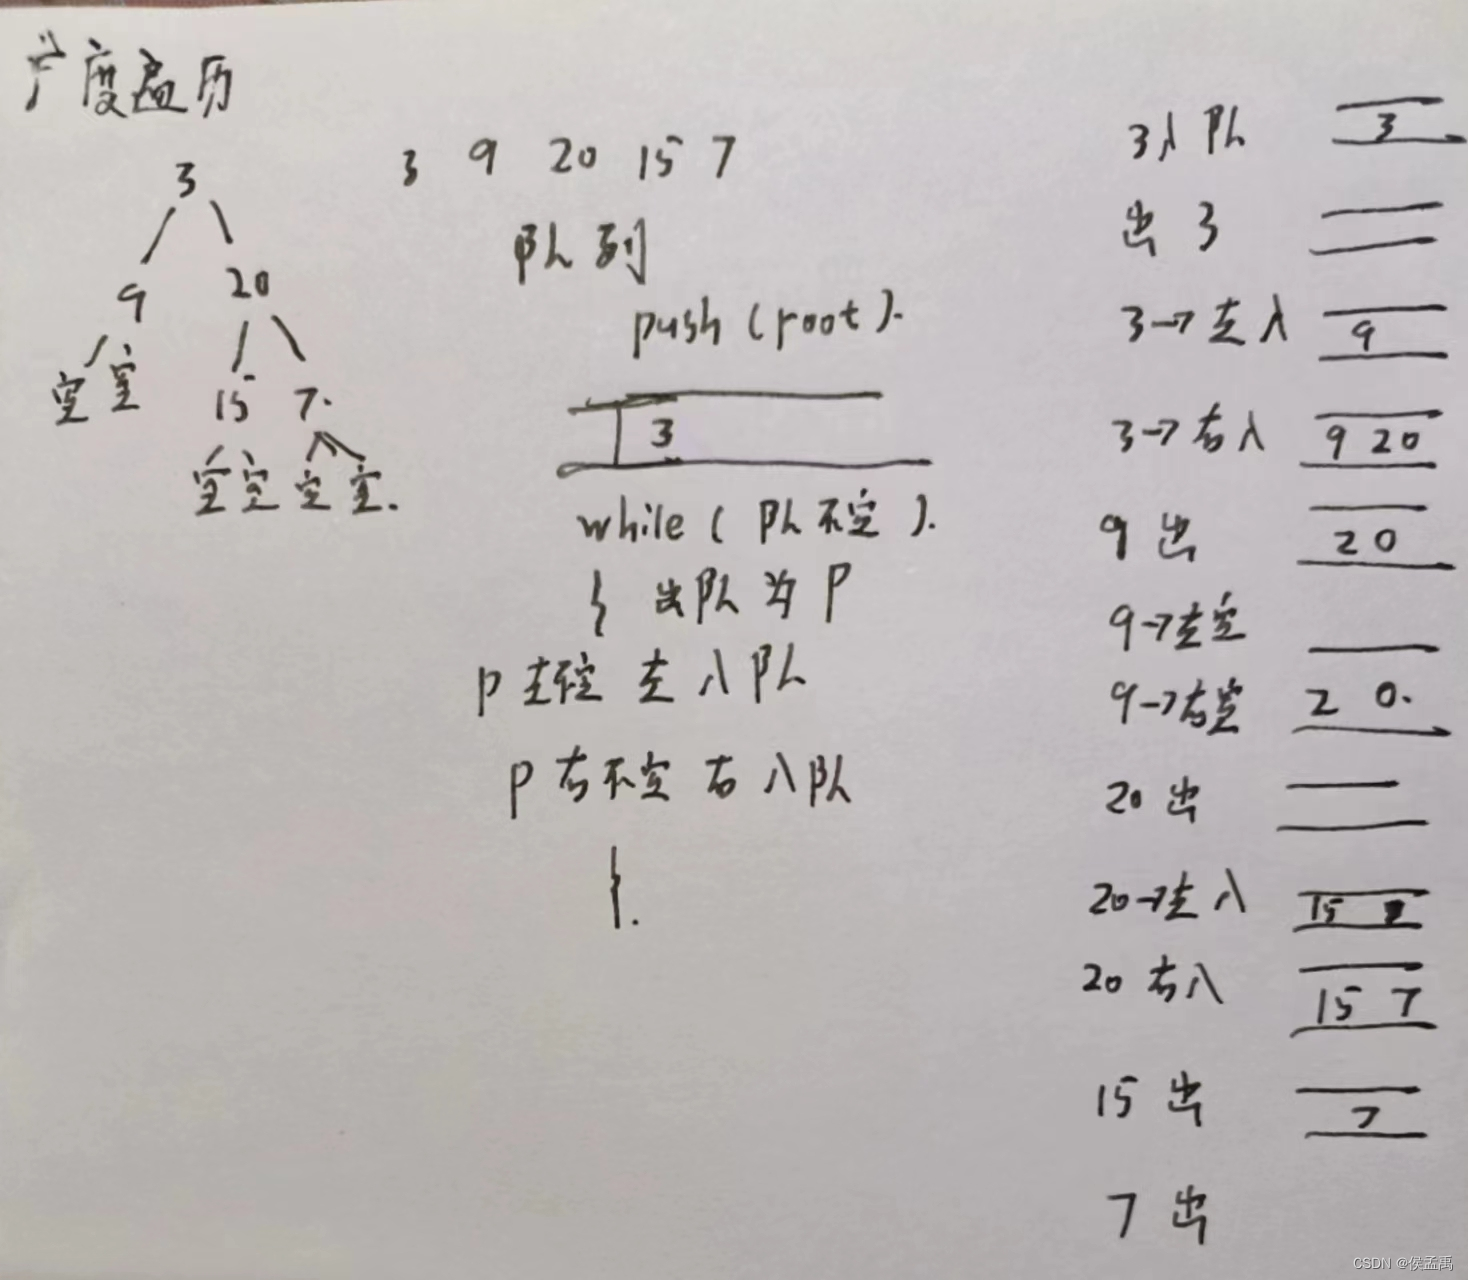 广度遍历
3
9 20
空 空 15 7.
空 空 空 空.
3 9 20 15 7
队列
push (root).
3
while ( 队不空 ).
{ 出队为 P
P 左不空 左入队
P 右不空 右入队
}.
3入队 3
出 3
3→左入 9
3→右入 9 20
9 出 20
9→左空
9→右空 20.
20 出
20→左入 15
20 右入 15 7
15 出 7
7 出
CSDN @侯孟禹